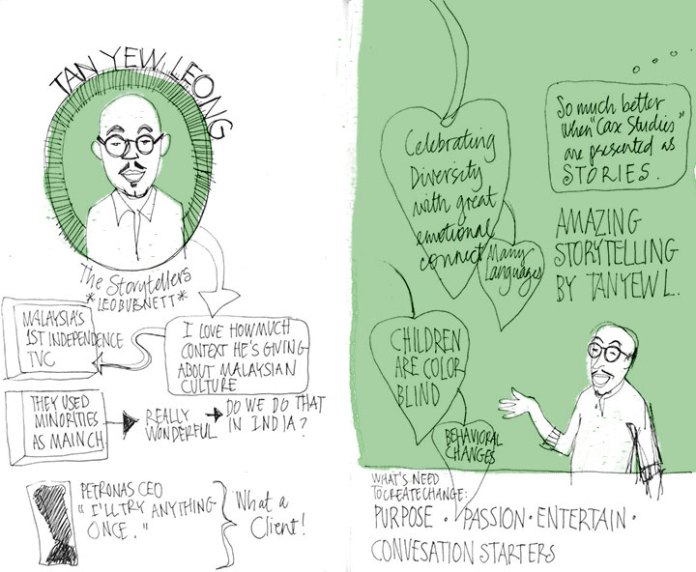 TAN YEW LEONG
The Storytellers
*LEOBURNETT*
MALAYSIA'S
1ST INDEPENDENCE
TVC
I LOVE HOW MUCH
CONTEXT HE'S GIVING
ABOUT MALAYSIAN
CULTURE
THEY USED
MINORITIES
AS MAIN CH
REALLY
WONDERFUL
DO WE DO THAT
IN INDIA?
PETRONAS CEO
"I'LL TRY ANYTHING
ONCE."
What a
Client!
Celebrating
Diversity
with great
emotional
connect
Many
Languages
So much better
when "Case Studies"
are presented as
STORIES.
AMAZING
STORYTELLING
BY TANYEW L.
CHILDREN
ARE COLOR
BLIND
BEHAVIORAL
CHANGES
WHAT'S NEED
TO CREATE CHANGE:
PURPOSE · PASSION · ENTERTAIN ·
CONVESATION STARTERS